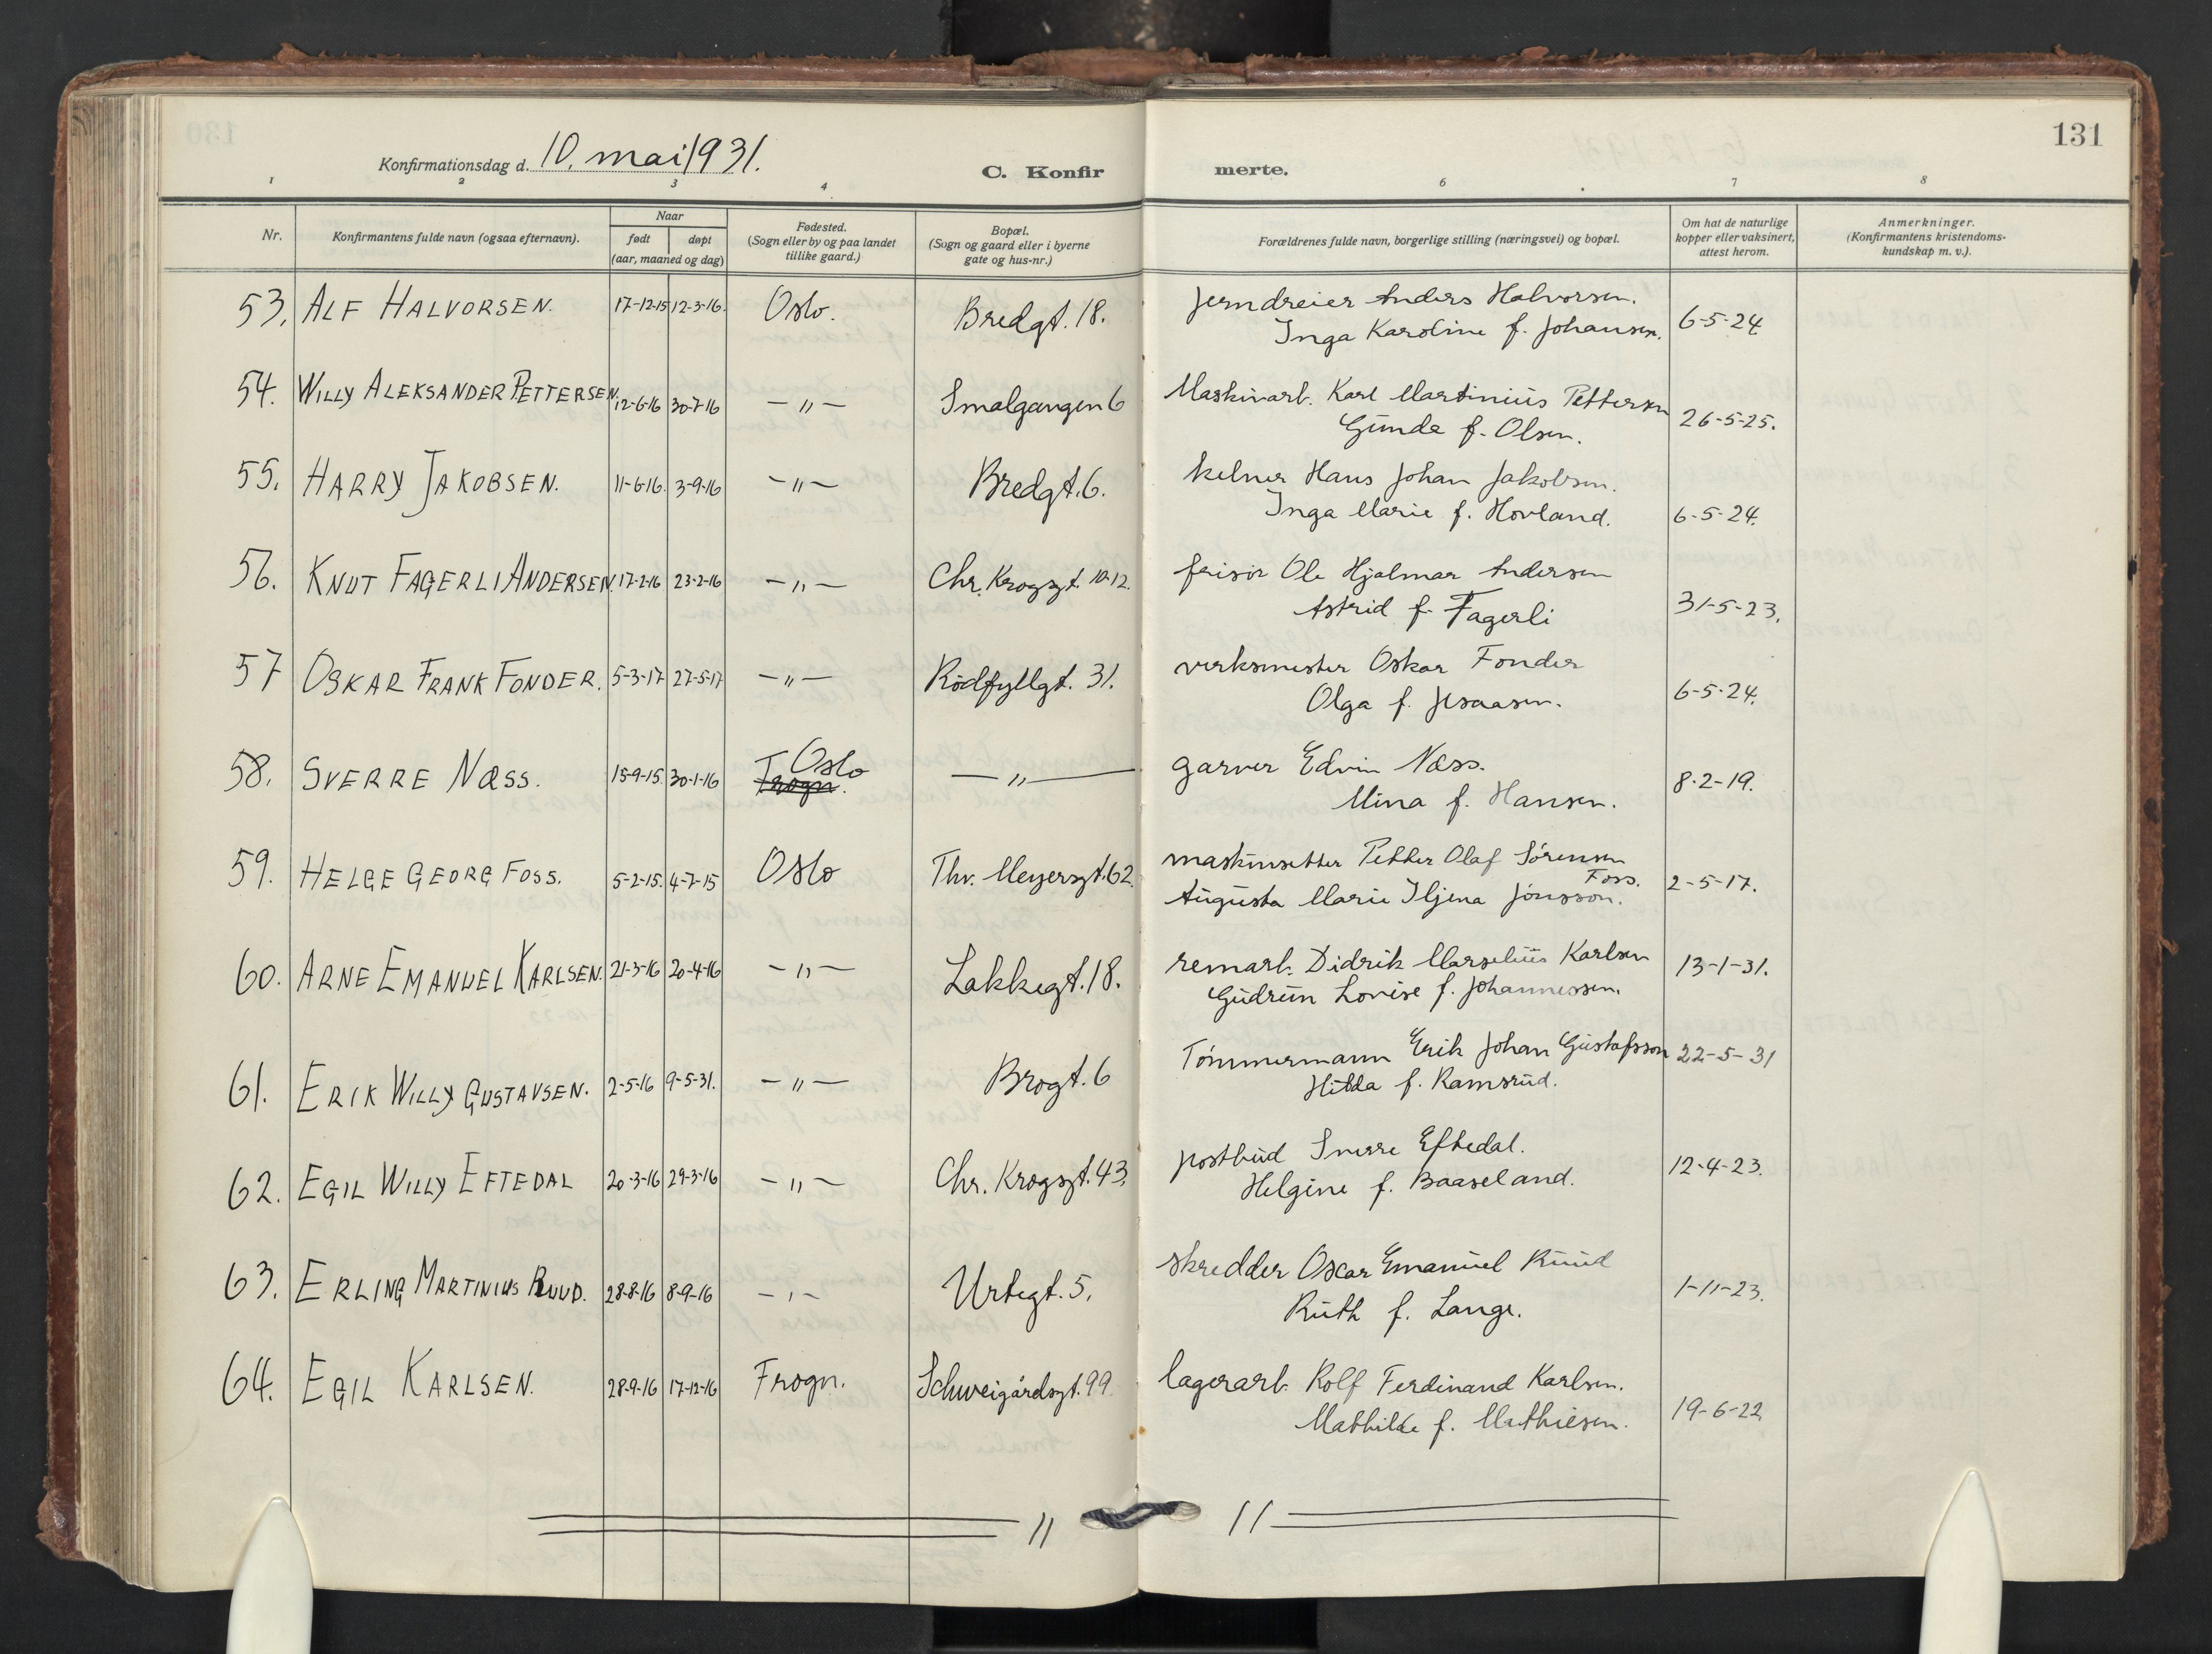 131
Konfirmationsdag d. 10. mai 1931.
C. Konfir merte.
1 2 3 4 6 7 8
Nr.
Konfirmantens fulde navn (ogsaa efternavn).
Naar
født døpt
(aar, maaned og dag)
Fødested.
(Sogn eller by og paa landet
tillike gaard.)
Bopæl.
(Sogn og gaard eller i byerne
gate og hus-nr.)
Forældrenes fulde navn, borgerlige stilling (næringsvei) og bopæl.
Om hat de naturlige
kopper eller vaksinert,
attest herom.
Anmerkninger.
(Konfirmantens kristendoms-
kundskap m. v.).
53. ALF HALVORSEN. 17-12-15 12-3-16. Oslo. Bredgt. 18. Jerndreier Anders Halvorsen.
Inga Karoline f. Johansen. 6-5-24.
54. WILLY ALEKSANDER PETTERSEN. 12-6-16 30-7-16 -"- Smalgangen 6 Maskinarb. Karl Martinius Pettersen
Gunda f. Olsen. 26-5-25.
55. HARRY JAKOBSEN. 11-6-16. 3-9-16 -"- Bredgt. 6. kelner Hans Johan Jakobsen.
Inga Marie f. Hovland. 6-5-24.
56. KNUT FAGERLI ANDERSEN. 17-2-16 23-2-16 -"- Chr. Krogsgt. 10-12. frisør Ole Hjalmar Andersen
Astrid f. Fagerli 31-5-23.
57 OSKAR FRANK FONDER. 5-3-17 27-5-17 -"- Rödfyllgt. 31. verksmester Oskar Fonder
Olga f. Jsaasen. 6-5-24.
58. SVERRE NÆSS. 15-9-15. 30-1-16 Oslo
Frogn. -"- garver Edvin Næss.
Mina f. Hansen. 8-2-19.
59. HELGE GEORG FOSS. 5-2-15. 4-7-15 Oslo Thv. Meyersgt. 62. maskinsetter Petter Olaf Sørensen
Foss.
Augusta Marie Iljena Jónsson. 2-5-17.
60. ARNE EMANUEL KARLSEN. 21-3-16 20-4-16 -"- Lakkegt. 18. remarb. Didrik Marselius Karlsen
Gudrun Lovise f. Johannessen. 13-1-31.
61. ERIK WILLY GUSTAVSEN. 2-5-16 9-5-31. -"- Brogt. 6 Tømmermann Erik Johan Gustafsson
Hilda f. Ramsrud. 22-5-31
62. EGIL WILLY EFTEDAL 20-3-16 29-3-16 -"- Chr. Krogsgt. 43. postbud Sverre Eftedal.
Helgine f. Baaseland. 12-4-23.
63. ERLING MARTINIUS RUUD. 28-8-16 8-9-16 -"- Urtegt. 5. skredder Oscar Emanuel Ruud
Ruth f. Lange. 1-11-23.
64. EGIL KARLSEN. 28-9-16 17-12-16 Frogn. Schweigårdsgt. 99. lagerarb. Rolf Ferdinand Karlsen.
Mathilde f. Mathiesen. 19-6-22